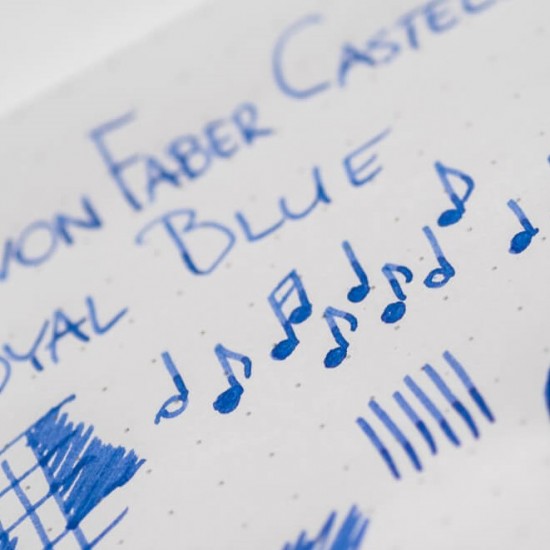 VON FABER CASTELL
ROYAL BLUE